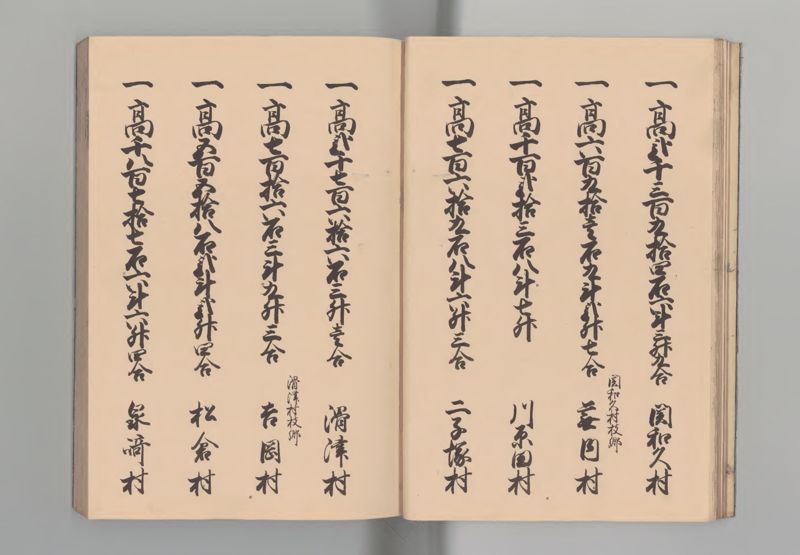 一高弐千三百九拾四石六斗三升九合 関和久村
関和久村枝郷
一高六百九拾壱石九斗弐升七合 村
一高千百弐拾三石八斗七升 川原田村
一高七百六拾九石八斗六升三合 二子塚村
一高弐千七百六拾六石三升壱合 滑津村
滑津村枝郷
一高七百拾六石三斗九升三合 吉岡村
一高五百五拾八石弐斗弐升四合 松倉村
一高千八百七拾七石六斗六升四合 泉﨑村